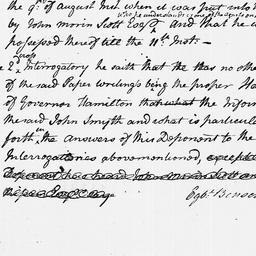 the 9th of August Inst when it was put into
who he understands is one of the
by John Morin Scott Esqr and that he
possessed thereof till the 11th Inst: —
Cross
2d Interrogatory he saith that he has no other
of the said Paper writing's being the proper
of Governor Hamilton than what the Inform
the said John Smyth and what is particularly
forth in the answers of this Deponent to the
Interrogatories abovementioned, except
Deponent has heard John Morin Scott
Egbt Benson